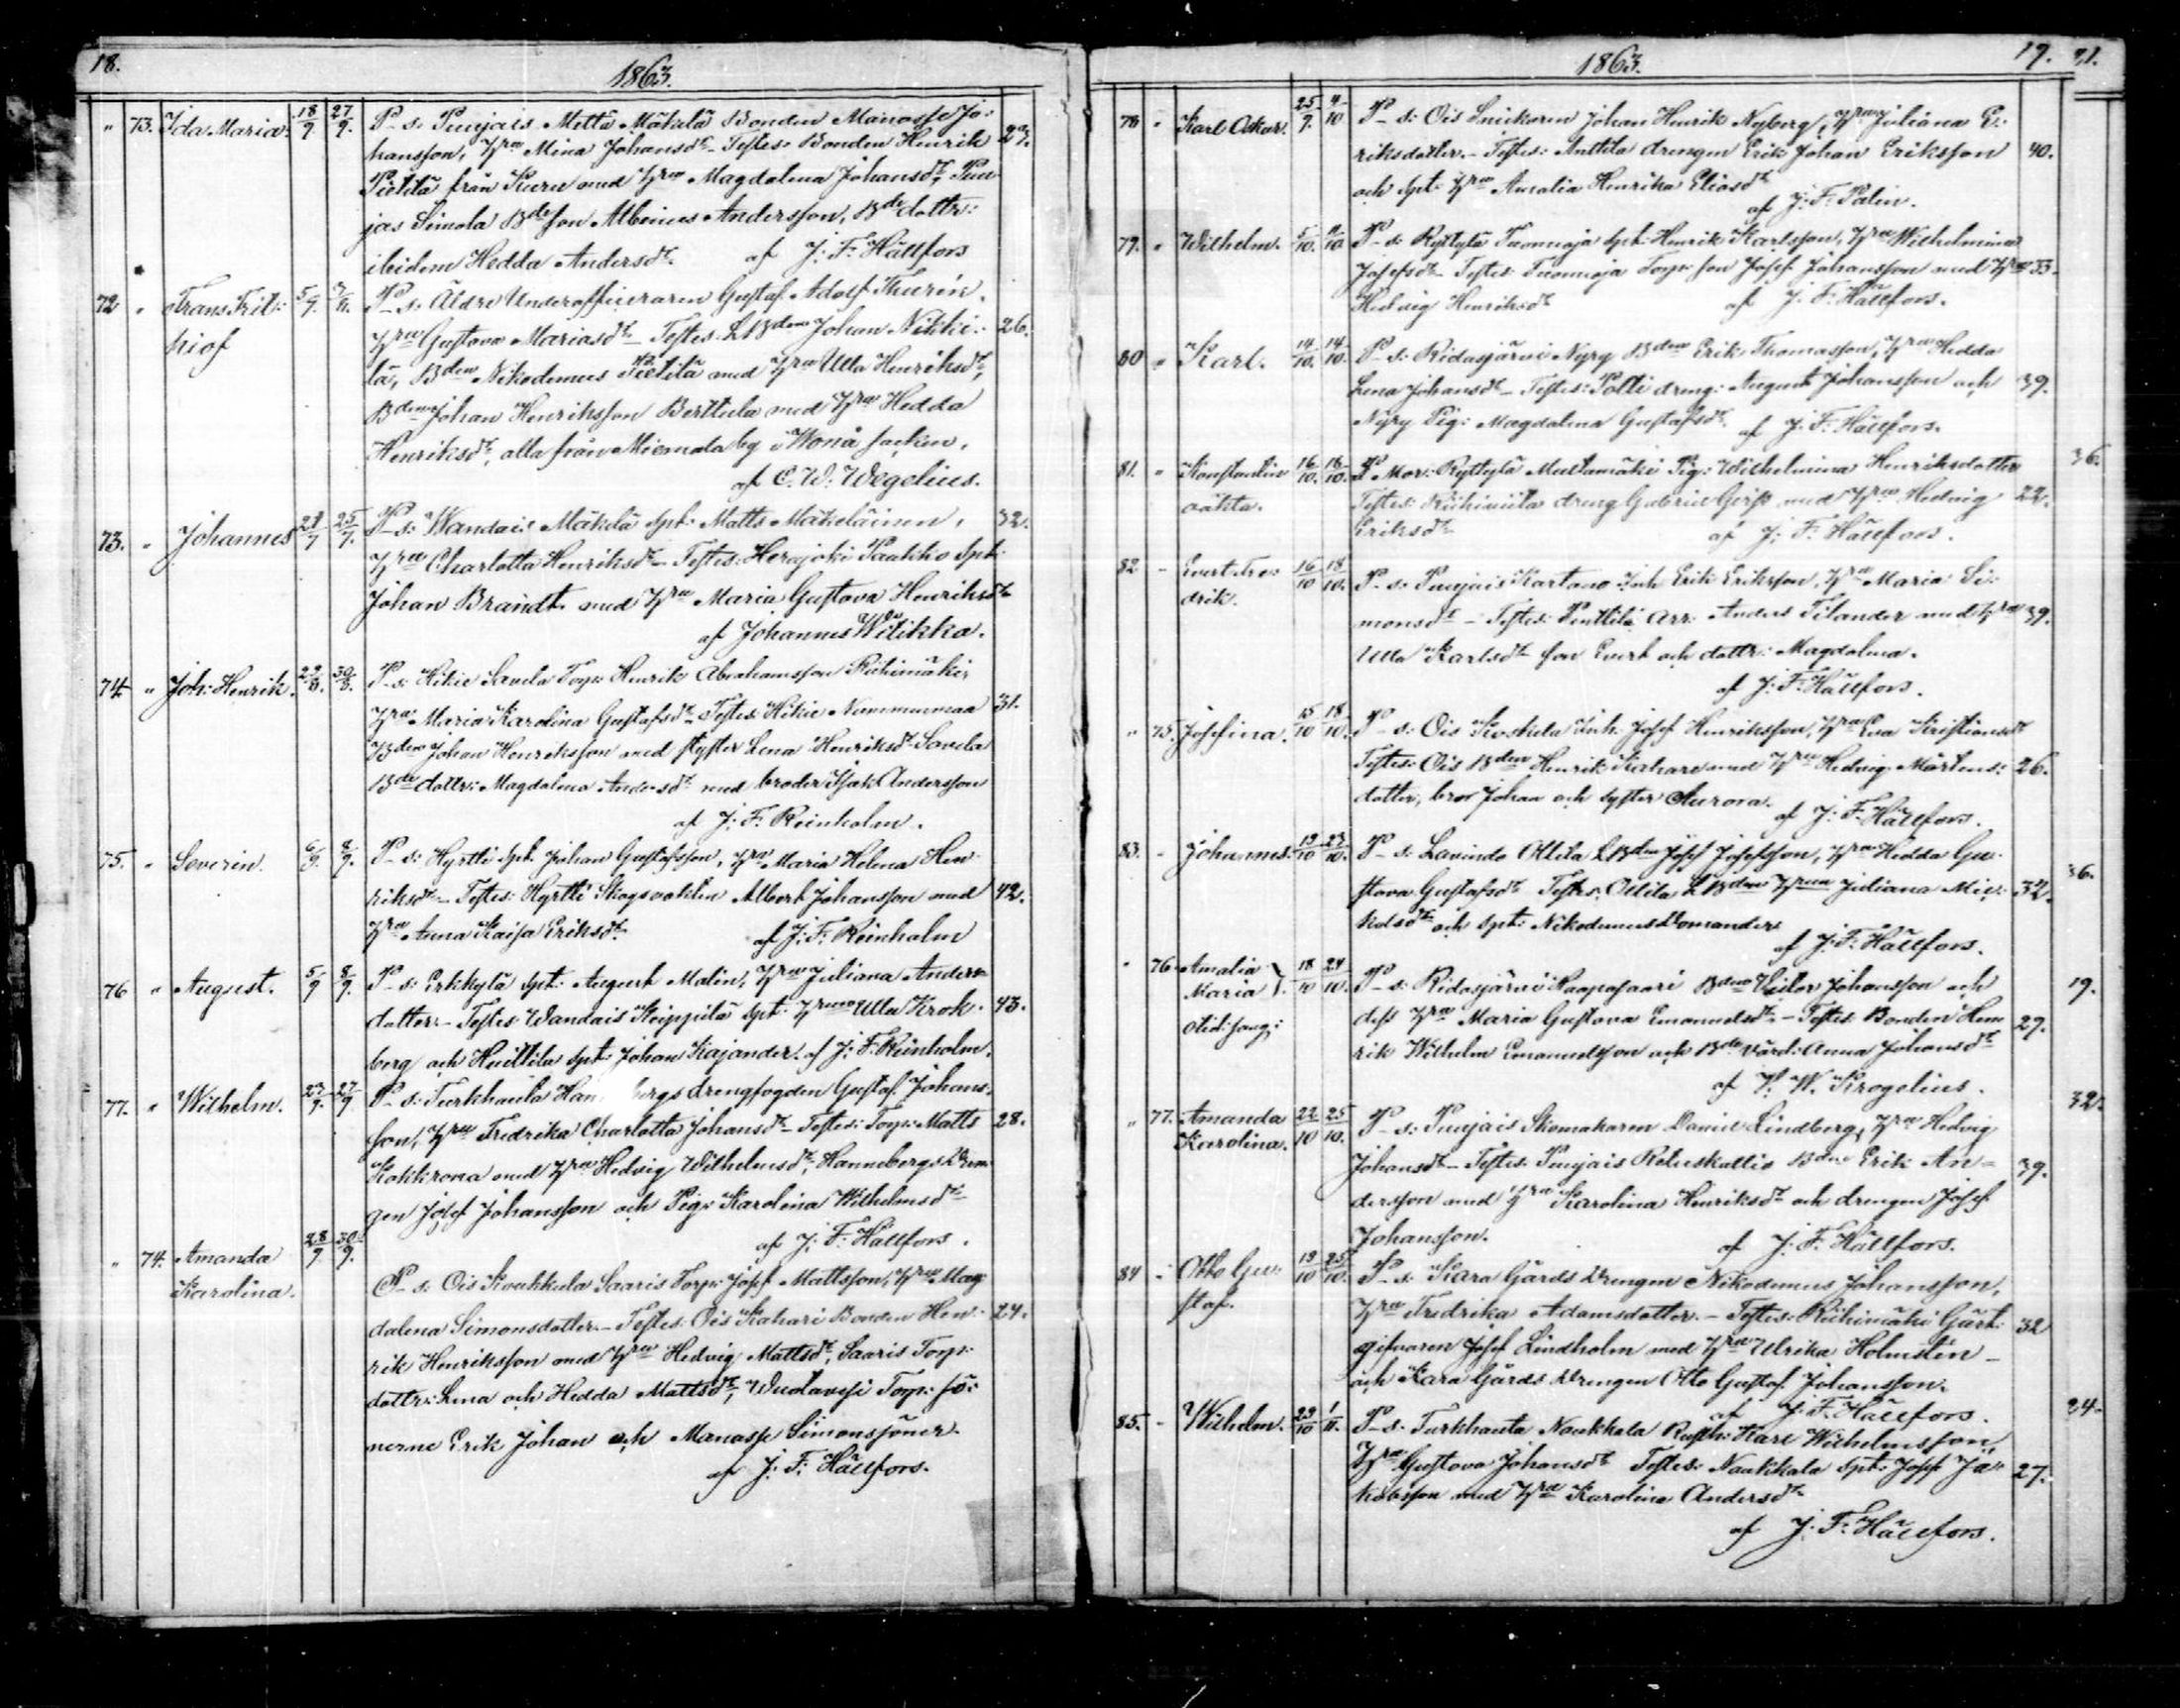 18.
1863.
" 73. Ida Maria. 18/9 27/9. P-s: Punjais Mella Mäkelä Bonden Manasse Jo:
hansson, Hru Mina Johansdr - Testes Bonden Henrik 23.
Pietilä från Kuru med Hru Magdalena Johansdr, Pun
jas Simola Bdeson Albinus Andersson, Bdedottr:
ibidem Hedda Andersdr. af J: F: Hällfors
72 " Frans Frit: P-s: Äldre Underofficeraren Gustaf Adolf Thurén,
hiof Hru Gustava Mariasdr - Testes: LBden Johan Nikki: 26.
lä, Bden Nikodemus Pietilä med Hru Ulla Henriksdr,
Bden Johan Henriksson Berttula med Hru Hedda
Henriksdr, alla från Miemala by i Wonå socken.
af C. W. Wegelius.
73. " Johannes 25/7. P-s: Wandais Mäkelä Spt: Matts Mäkeläinen, 32.
Hru Charlotta Henriksdr - Testes: Herajoki Paukko Spt:
Johan Brandt med Hru Maria Gustava Henriksdr
af Johannes Witikka.
74 " Joh: Henrik. 30/8. P-s: Hikie Savela Torp: Henrik Abrahamsson Riihimäki,
Hru Maria Karolina Gustafsdr Testes: Hikie Nummenmaa 31.
Bden Johan Henriksson med syster Lena Henriksdr Savela
Bdedottr: Magdalena Andersdr med broder Isak Andersson
af J: F: Reinholm.
75. " Severin. 6/9. 8/9. P-s: Hyrtti Spt: Johan Gustafsson, Hru Maria Helena Hen
riksdr - Testes: Hyrtti Skogsvakten Albert Johansson med 42.
Hru Anna Kaisa Eriksdr. af J: F: Reinholm
76 " August. 5/9 8/9. P-s: Erkkylä Spt: August Malin, Hru Juliana Anders
dotter. - Testes Wandais Keippilä Spt: Hru Ulla Krok- 43.
berg och Huittila Spt: Johan Kajander. af J: F: Reinholm.
77. " Wilhelm. 23/9. 27/9 P-s: Turkhauta Han bergs drengfogden Gustaf Johans-
son, Hru Fredrika Charlotta Johansdr - Testes: Torp: Matts 28.
Kokkrona med Hru Hedvig Wilhelmsdr, Hannebergs Dren
gen Josef Johansson och Pig: Karolina Wilhelmsdr
af J: F: Hällfors.
" 74. Amanda 28/9 30/9.
Karolina. P-s: Ois Koukkula Saaris Torp: Josef Mattsson, Hru Mag
dalena Simonsdotter. - Testes: Ois Kahari Bonden Hen- 24.
rik Henriksson med Hru Hedvig Mattsdr, Saaris Torp:
dottr: Lena och Hedda Mattsdr, Torp: sö:
nerne Erik Johan och Manasse Simonssöner.
af J: F: Hällfors.
1863.
19. 21.
78 " Karl Oskar. 25/9. 4/10 P-s: Ois Snickaren Johan Henrik Nyberg, Hru Juliana E:
riksdotter. - Testes: Anttila drengen Erik Johan Eriksson 40.
och Spt: Hru Amalia Henrika Eliasdr
af J: F: Palin.
79. " Wilhelm. 5/10. P-s: Ryttylä Tuomioja Spt: Henrik Karlsson, Hru Wilhelmina
Josefsdr - Testes: Tuomioja Torp: son Josef Johansson med Hru 33.
Hedvig Henriksdr af J: F: Hällfors.
80 " Karl. 14/10. 14/10. P-s: Ridasjärvi Nyry Bden Erik Thomasson, Hru Hedda
Lena Johansdr - Testes: Polli dreng: August Johansson och 39.
Nyry Pig: Magdalena Gustafsdr. af J: F: Hällfors.
36.
81. " Konstantin 16/10. 18/10. P Mor: Ryttylä Multamäki Pig: Wilhelmina Henriksdotter
oäkta. Testes: Riihiviita dreng Gabriel med Hru Hedvig 22.
Eriksdr af J: F: Hällfors.
82 - Evert Fre: 16/10 18/10. P-s: Punjais Kartano Inh: Erik Eriksson, Hru Maria Si:
drik. monsdr - Testes: Penttilä Arr: Anders Filander med Hru 39.
Ulla Karlsdr son Evert och dottr: Magdalena.
af J: F: Hällfors.
" 75. Josefina. 15/10 18/10. P-s: Ois Koskela Inh: Josef Henriksson, Hru Eva Kristiansdr
Testes: Ois Bden Henrik Kahare med Hru Hedvig Mårtens: 26.
dotter, bror Johan och syster Aurora.
af J: F: Hällfors.
83. - Johannes. 19/10 23/10. P-s: Lavinto Ollila LBden Josef Josefsson, Hru Hedda Gu- 36.
stava Gustafsdr Testes: Ollila LBden Hrun Juliana Mic: 32.
kelsdr och Spt: Nikodemus Domander
af J: F: Hällfors.
" 76. Amalia 18/10 24/10. P-s: Ridasjärvi Haaposaari Bden Viktor Johansson och 19.
Maria dess Hru Maria Gustava Emanuelsdr - Testes: Bonden Hen 29.
rik Wilhelm Emanuelsson och Bde värd: Anna Johansdr
af K. W. Krogelius.
32.
" 77. Amanda 22/10 25/10. P-s: Punjais Skomakaren Daniel Lindberg, Hru Hedvig
Karolina. Johansdr - Testes: Punjais Rehuskallio Bden Erik An- 39.
dersson med Hru Karolina Henriksdr och drengen Josef
Johansson. af J: F: Hällfors.
84 - Otto Gu: 19/10 25/10. P-s: Kara Gårds Drengen Nikodemus Johansson,
staf. Hru Fredrika Adamsdotter. - Testes: Riihimäki Gäst: 32
gifvaren Josef Lindholm med Hru Ulrika Holmstén -
och Kara Gårds Drengen Otto Gustaf Johansson.
af J: F: Hällfors. 24.
85. - Wilhelm. 29/10 1/11. P-s: Turkhauta Naukkala Rusth: Karl Wilhelmsson,
Hru Gustava Johansdr Testes: Naukkala Spt: Josef Ja: 27.
kobsson med Hru Karolina Andersdr
af J: F: Hällfors.